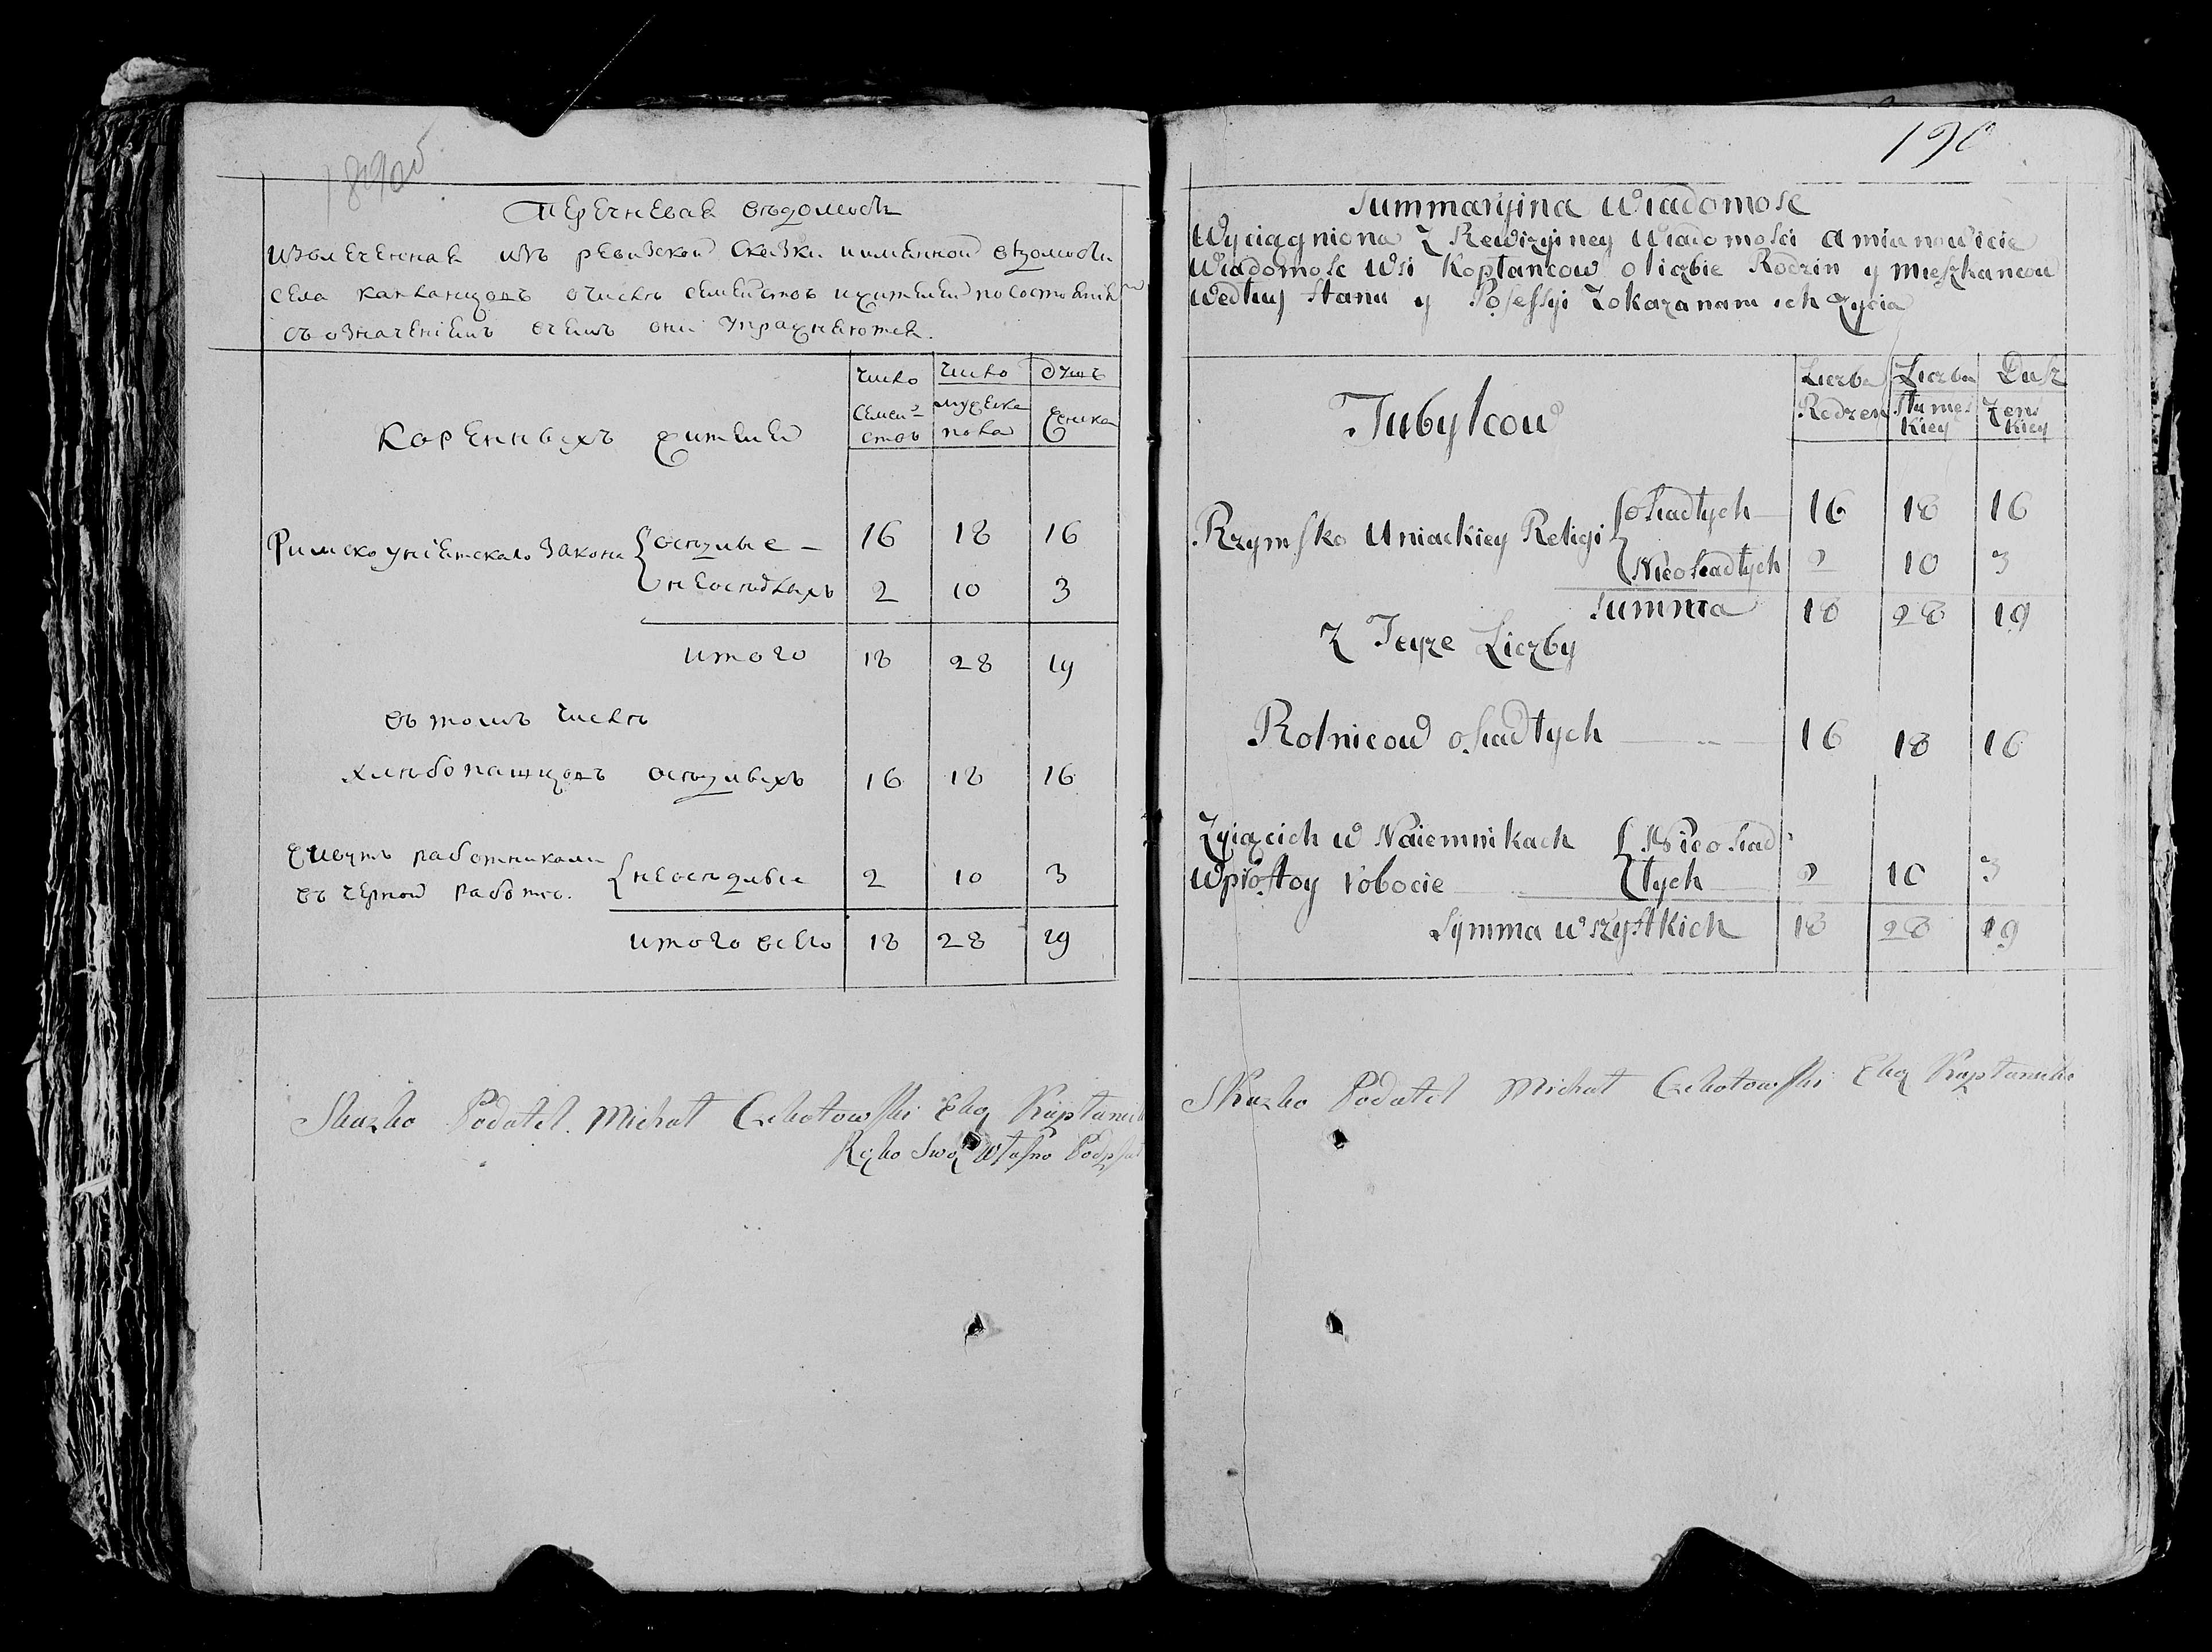 189об
Перечневая вѣдомость
Извлеченная изъ ревизской сказки имянной вѣдомости
села Капланцовъ о числѣ семействъ и жителей по состоянію
съ означеніемъ вчемъ они упражняются.
Коренныхъ жителей
число семействъ
число мужеска пола
душъ женска
Римско униятскаго закона { осѣдлые — 16 18 16
неосѣдлыхъ 2 10 3
итого 18 28 19
въ томъ числѣ
хлѣбопашцовъ осѣдлыхъ 16 18 16
живутъ работниками
въ черной работѣ. { неосѣдлые 2 10 3
итого всего 18 28 19
Skazko Podatel Michał Czhotowski Eko
Ręko Swoą Własno Podpisał
190
Summaryina Wiadomosc
Wyciągniona z Rewizyiney Wiadomosci a mianowicie
Wiadomosc Wsi Koptancow o liczbie Rodzin y Mieszkancow
Według Stanu y Posessyi Zokazanam ich Zycia
Tubylcow
Liczba Rodzen
Liczba Stu mes kiey
Dusz Zens kiey
Rzymsko Uniackiey Religi { osiadłych 16 18 16
Nieosiadłych 2 10 3
Summa 18 28 19
Z Teyże Liczby
Rolnicow osiadłych 16 18 16
Zyiącich w Naiemnikach { Nieosiad
Wprostoy robocie { łych 2 10 3
Symma wszystkich 18 28 19
Skazko Podatel Michał Czhotowski Eko